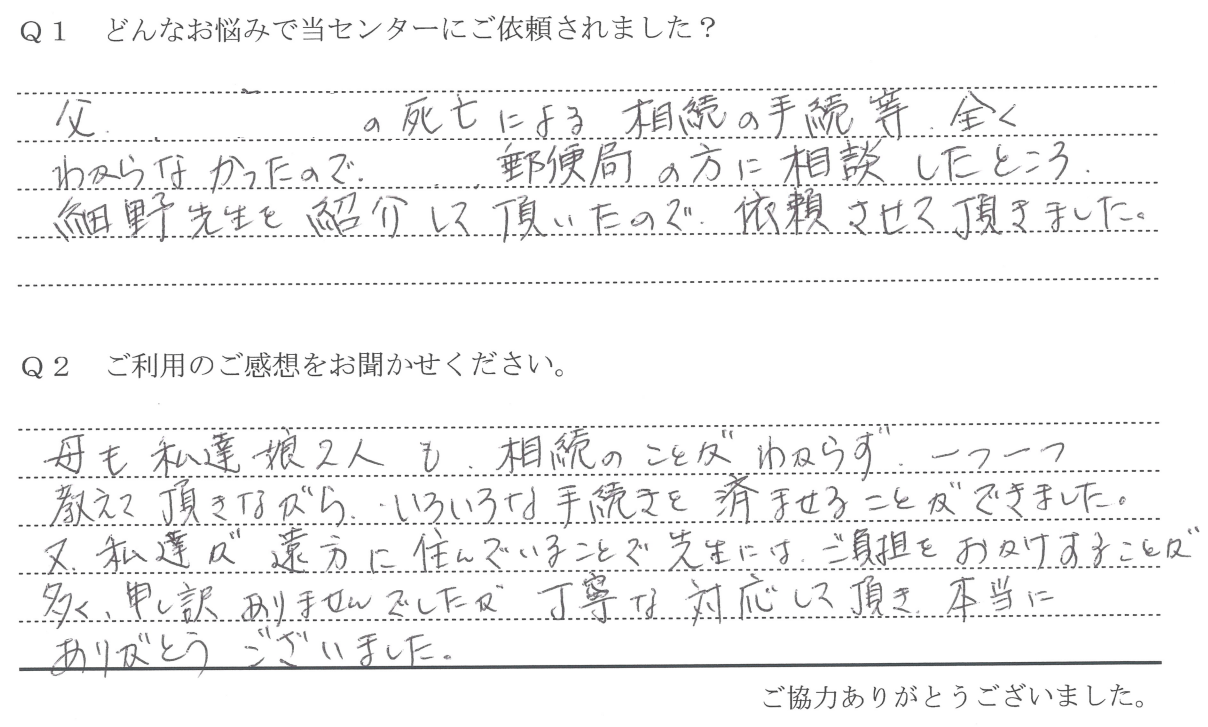 Q1 どんなお悩みで当センターにご依頼されました？
父 の死亡による 相続の手続等、全く
わからなかったので、 郵便局の方に相談したところ、
細野先生を紹介して頂いたので、依頼させて頂きました。
Q2 ご利用のご感想をお聞かせください。
母も私達娘2人も、相続のことがわからず、一つ一つ
教えて頂きながら、いろいろな手続きを済ませることができました。
又、私達が遠方に住んでいることで先生には、ご負担をおかけすることが
多く、申し訳ありませんでしたが丁寧な対応して頂き、本当に
ありがとうございました。
ご協力ありがとうございました。